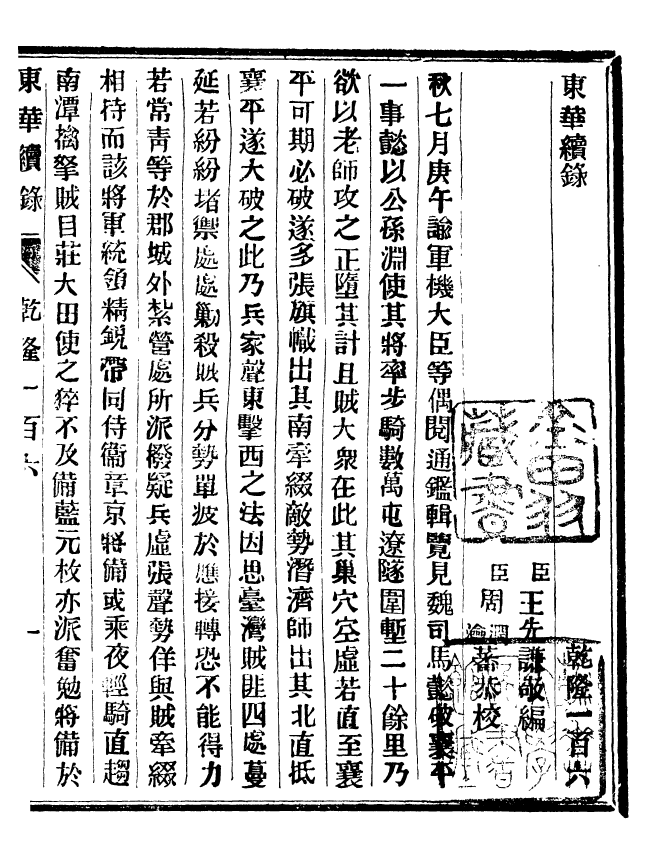 東華續錄
乾隆一百六
臣王先謙敬編
臣周潤蕃周瀹蕃恭校
秋七月庚午諭軍機大臣等偶閱通鑑輯覽見魏司馬懿破襄平
一事懿以公孫淵使其將率步騎數萬屯遼隧圍塹二十餘里乃
欲以老師攻之正墮其計且賊大衆在此其巢穴空虛若直至襄
平可期必破遂多張旗幟出其南牽綴敵勢潛濟師出其北直抵
襄平遂大破之此乃兵家聲東擊西之法因思臺灣賊匪四處蔓
延若紛紛堵禦處處勦殺賊兵分勢單疲於應接轉恐不能得力
若常靑等於郡城外紮營處所派撥疑兵虛張聲勢佯與賊牽綴
相待而該將軍統領精銳帶同侍衞章京將備或乘夜輕騎直趨
南潭擒拏賊目莊大田使之猝不及備藍元枚亦派奮勉將備於
東華續錄 乾隆一百六 一